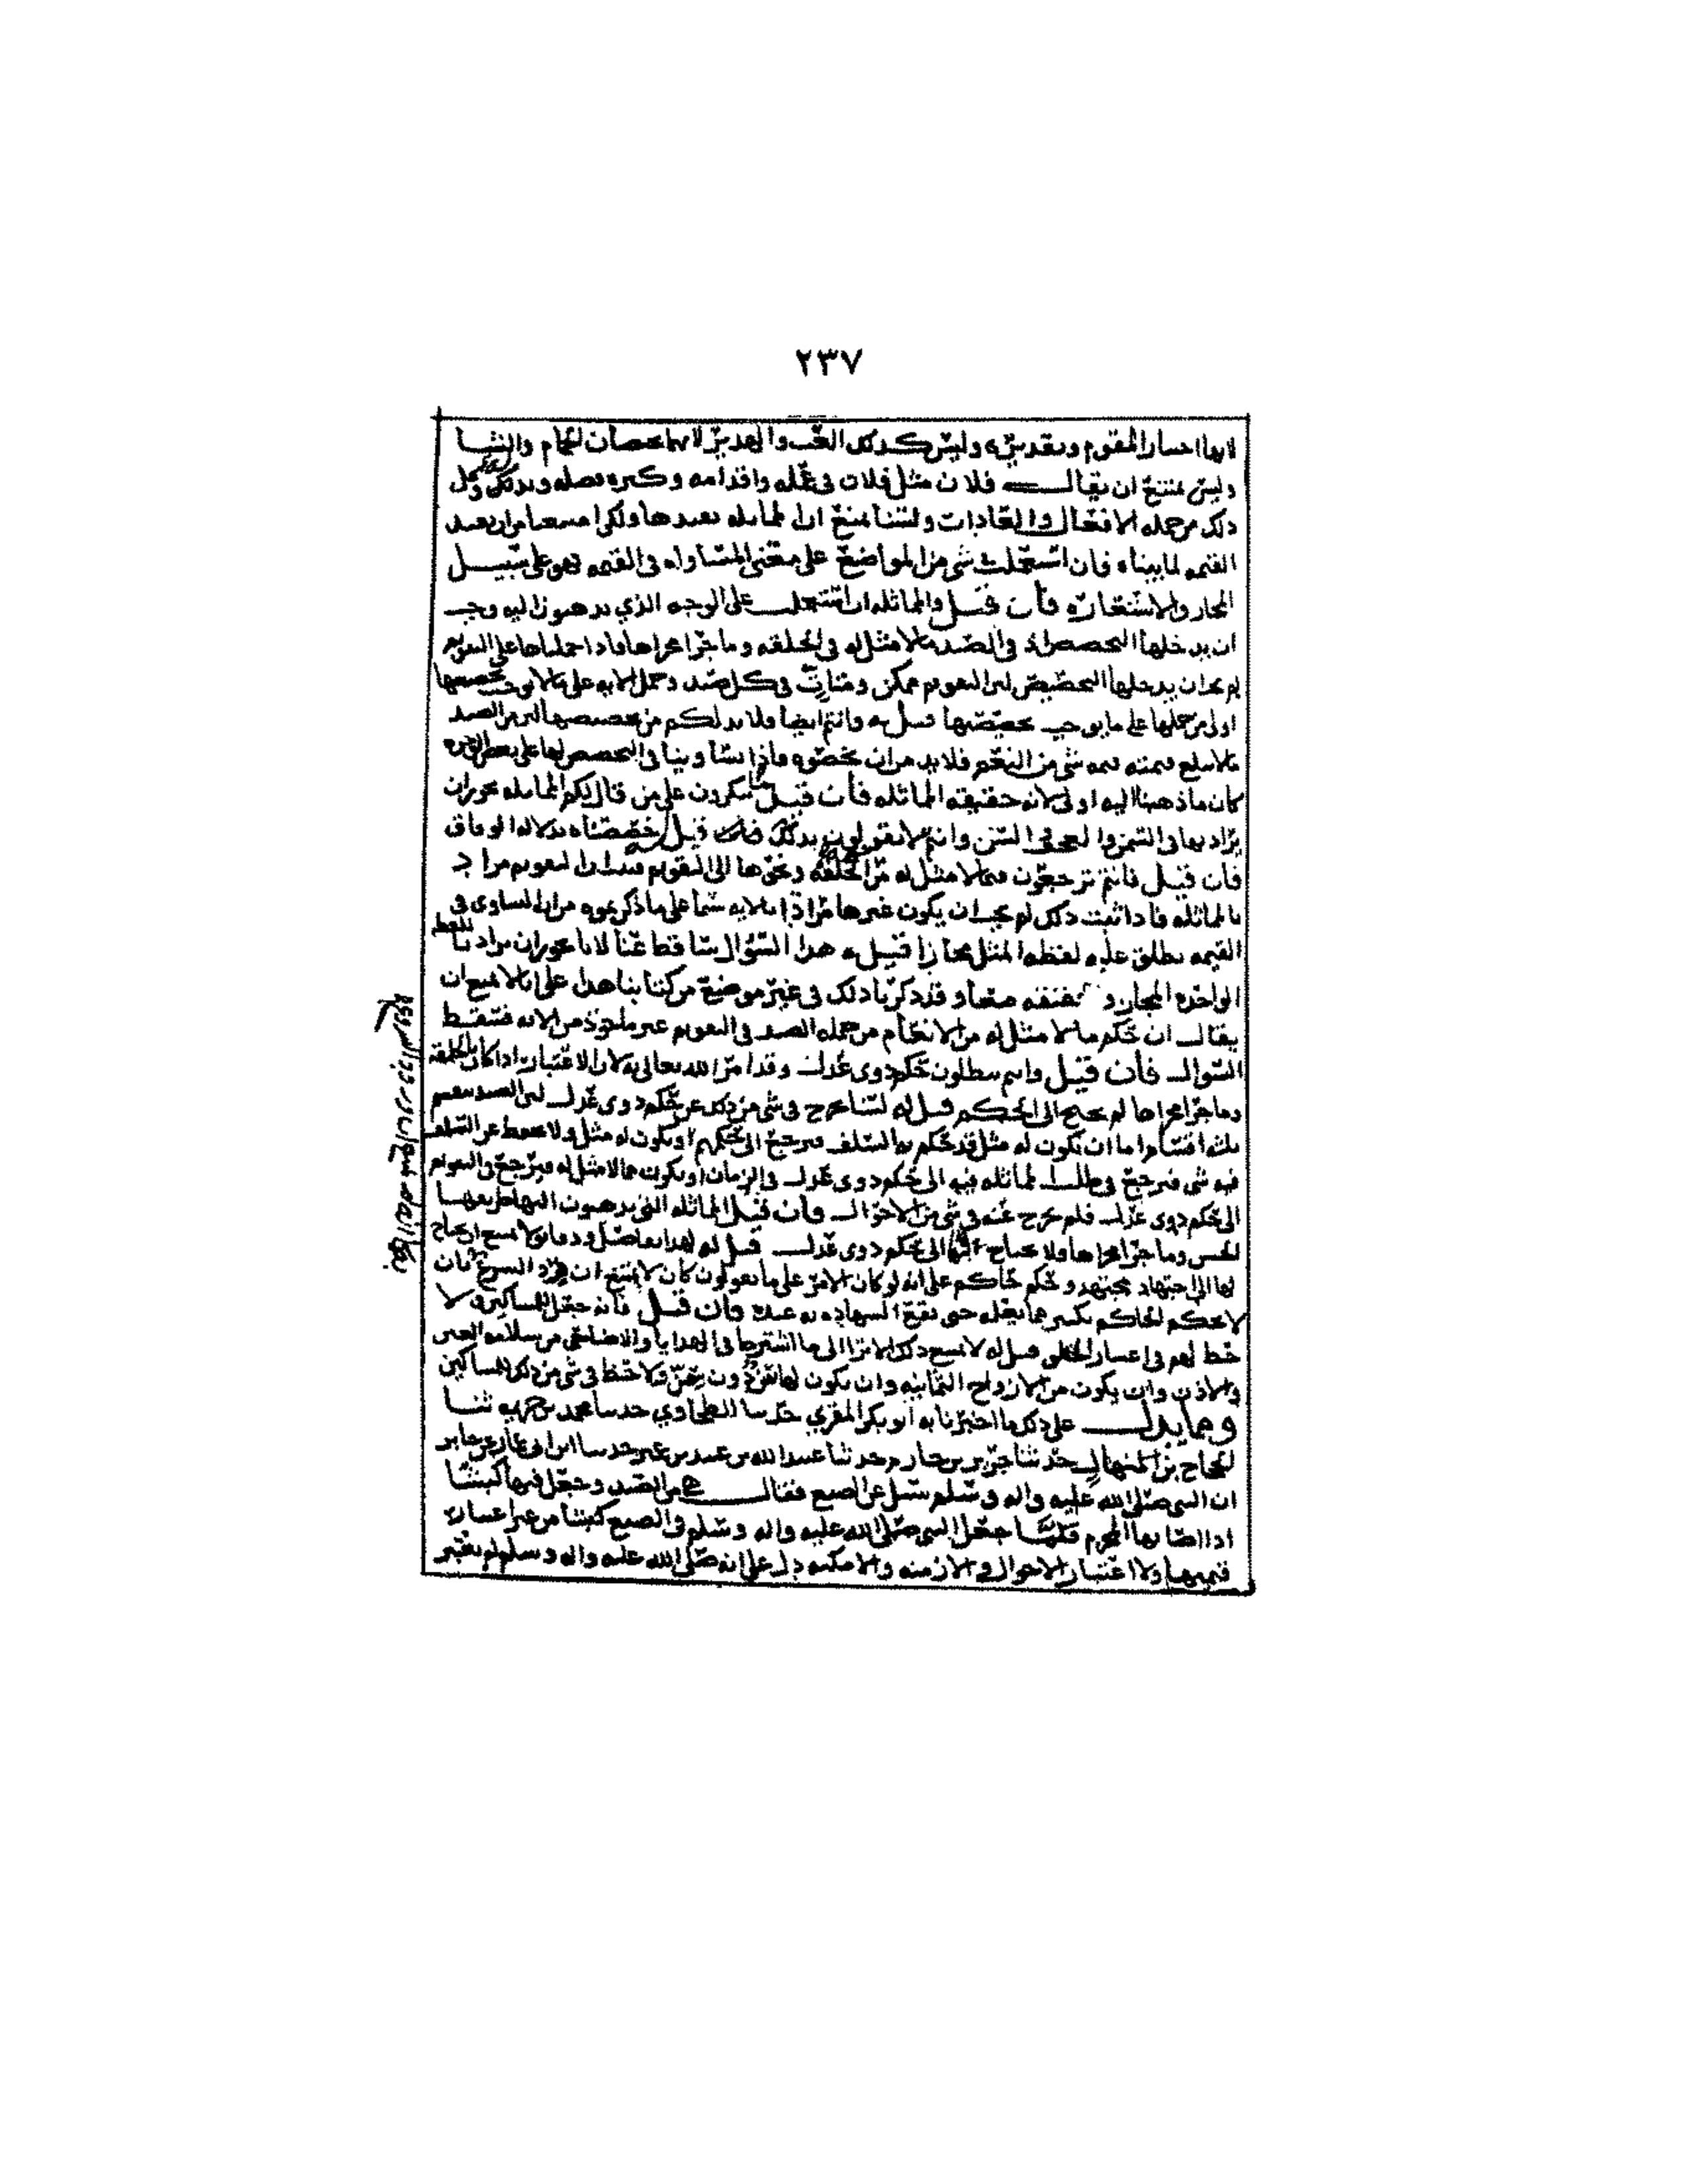 ٢٣٧
المقوم وليس كذلك العب والهدير لانهما يخصان الحمام والنشا
وليس يمتنع ان يقال فلان مثل فلان في عمله واقدامه وكبره وفضله
ذلك من جمله الافعال والعادات ولسنا نمنع ان المماثله
القيمه لما بيناه فان استعملت في شي من المواضع على معنى المساواه في القيمه فهو على سبيل
المجاز والاستعاره فان قيل والمماثله ان استعملت على الوجه الذي يذهبون اليه وجب
ان يدخلها التخصيص اذ في الصيد ما لا مثل له في الخلقه وما جرا مجراها فاذا حملناها على التقويم
لم يجز ان يدخلها التخصيص لان التقويم ممكن ومتات في كل صيد وحمل الايه على ما لا يوجب تخصيصها
اولى من حملها على ما يوجب تخصيصها قيل له وانتم ايضا فلا بد لكم من تخصيصها لان من الصيد
ما لا يبلغ قيمته قيمه شي من النعم فلا بد من ان تخصوه فاذا تساوينا في التخصيص
كان ما ذهبنا اليه اولى لانه حقيقه المماثله فان قيل ما تنكرون على من قال لكم المماثله يجوز ان
يراد بها في السمن والعجف في السن وانتم لا تقولون بذلك قيل خصصناه بدلاله الوفاق
فان قيل فانتم ترجعون فيما لا مثل له من الخلقه ونحوها الى التقويم فبدا ان التقويم مراد
بالمماثله فاذا ثبت ذلك لم يجب ان يكون غيرها مرادا بالايه سيما على ما ذكرتموه من ان المساوي في
القيمه يطلق عليه لفظه المثل مجازا قيل له هذا السؤال ساقط عنا لانا نجوز ان يراد باللفظ
الواحده المجاز و الحقيقه معا وقد ذكرنا ذلك في غير موضع من كتابنا هذا على انا لا نمنع ان
يقال ان حكم ما لا مثل له من الانعام من جمله الصيد في التقويم غير ماخوذ من الايه فسقط
السوال فان قيل وانتم تبطلون حكم ذوي عدل وقد امر الله تعالى به لان الاعتبار اذا كان بالخلقه
وما جرا مجراها لم يحتج الى الحكم قيل له لسنا نخرج في شي من ذلك عن حكم ذوي عدل لان الصيد ينقسم
ثلثه اقسام اما ان يكون له مثل قد حكم به السلف فيرجع الى حكمهم او يكون له مثل ولا يحفظ عن السلف
فيه شي فيرجع في طلب المماثله فيه الى حكم ذوي عدل في الزمان او يكون مما لا مثل له فيرجع في التقويم
الى حكم ذوي عدل فلم نخرج عنه في شي من الاحوال فان قيل المماثله التي يذهبون اليها طريقها
الحس وما جرا مجراها ولا يحتاج فيها الى حكم ذوي عدل قيل له لهذا تفاصيل ودقايق لا يمتنع ان يحتاج
لها الى اجتهاد مجتهد وحكم حاكم على انه لو كان الامر على ما تقولون كان لا يمتنع ان يرد الشرع بان
لا يحكم الحاكم بكثير مما يعلمه حتى تقع الشهاده به عنده فان قيل فانه جعل للمساكين و لا
حظ لهم في اعتبار الخلق قيل له لا يمتنع ذلك الا ترا الى ما اشترط في الهدايا والاضاحي من سلامه العين
والاذن وان يكون من الازواج الثمانيه وان يكون لها سن دون سن ولا حظ في شي من ذلك للمساكين
ومما يدل على ذلك ما اخبرنا به ابو بكر المقري حدثنا الطحاوي حدثنا محمد بن خزيمه ثنا
الحجاج بن المنهال حدثنا جرير بن حازم حدثنا عبدالله بن عبيد بن عمير حدثنا ابن ابي عمار عن جابر
ان النبي صلى الله عليه واله وسلم سئل عن الضبع فقال هي من الصيد وجعل فيها كبشا
اذا اصابها المحرم فلما جعل النبي صلى الله عليه واله وسلم في الضبع كبشا من غير اعتبار
قيمتها ولا اعتبار الاحوال و الازمنه والامكنه دل على انه صلى الله عليه واله وسلم لم يعتبر